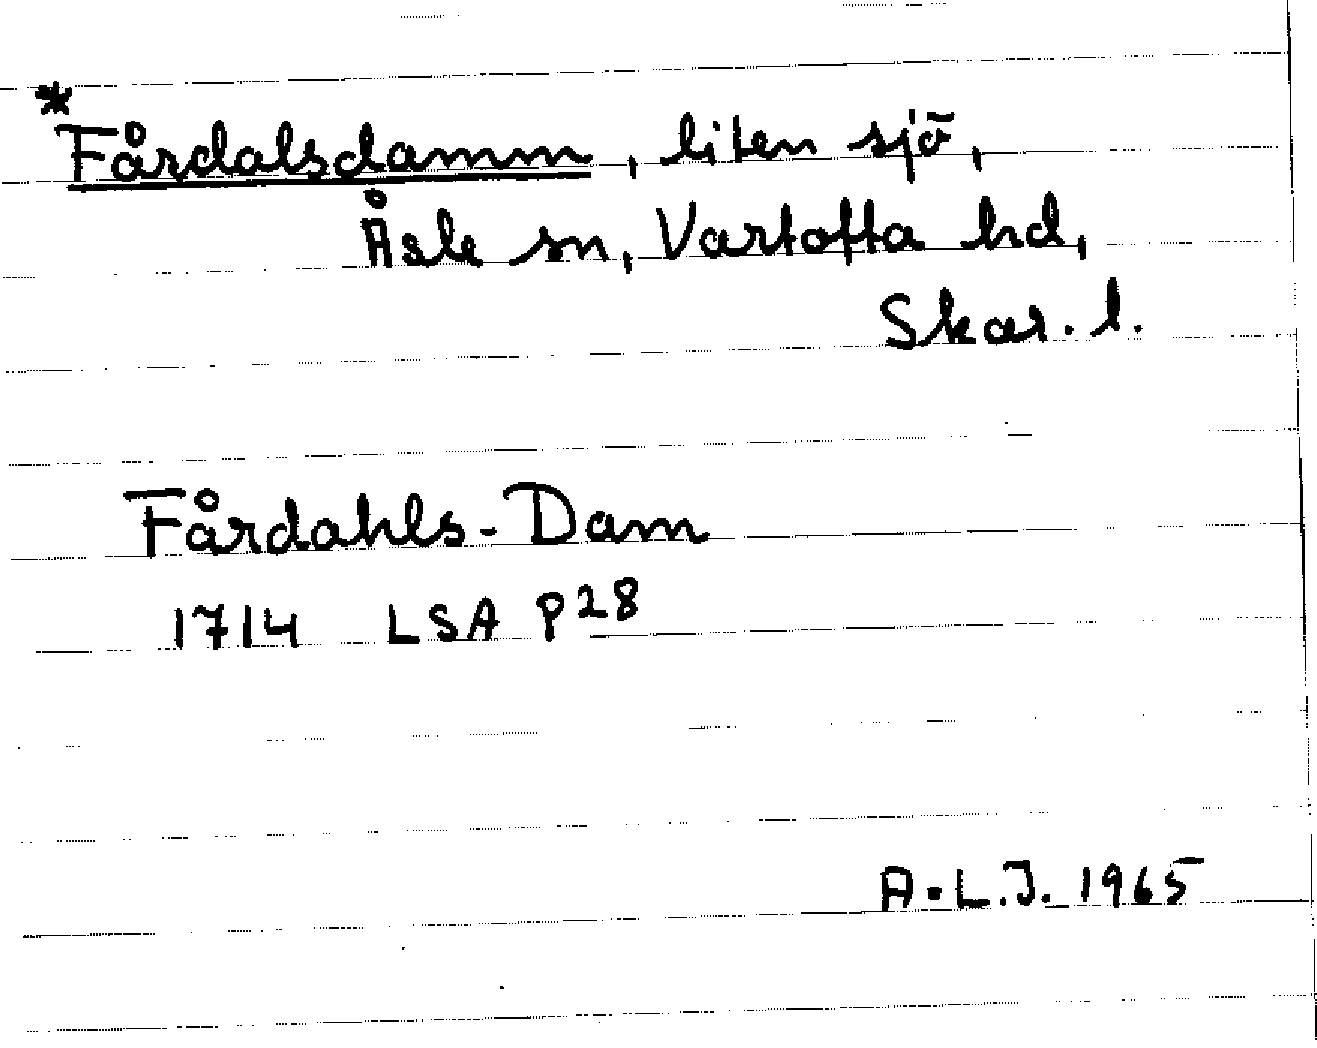 *Fårdalsdamm, liten sjö,
Åsle sn, Vartofta hd,
Skar. l.
Fårdahls-Dam
1714 LSA P28
A.L.J. 1965